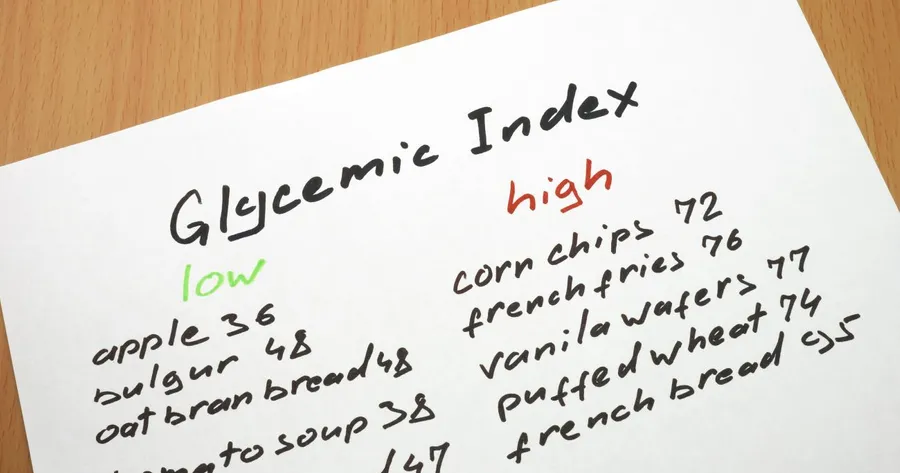 Glycemic Index
low
apple 36
bulgur 48
oat bran bread 48
tomato soup 38
47
high
corn chips 72
french fries 76
vanila wafers 77
puffed wheat 74
french bread 95